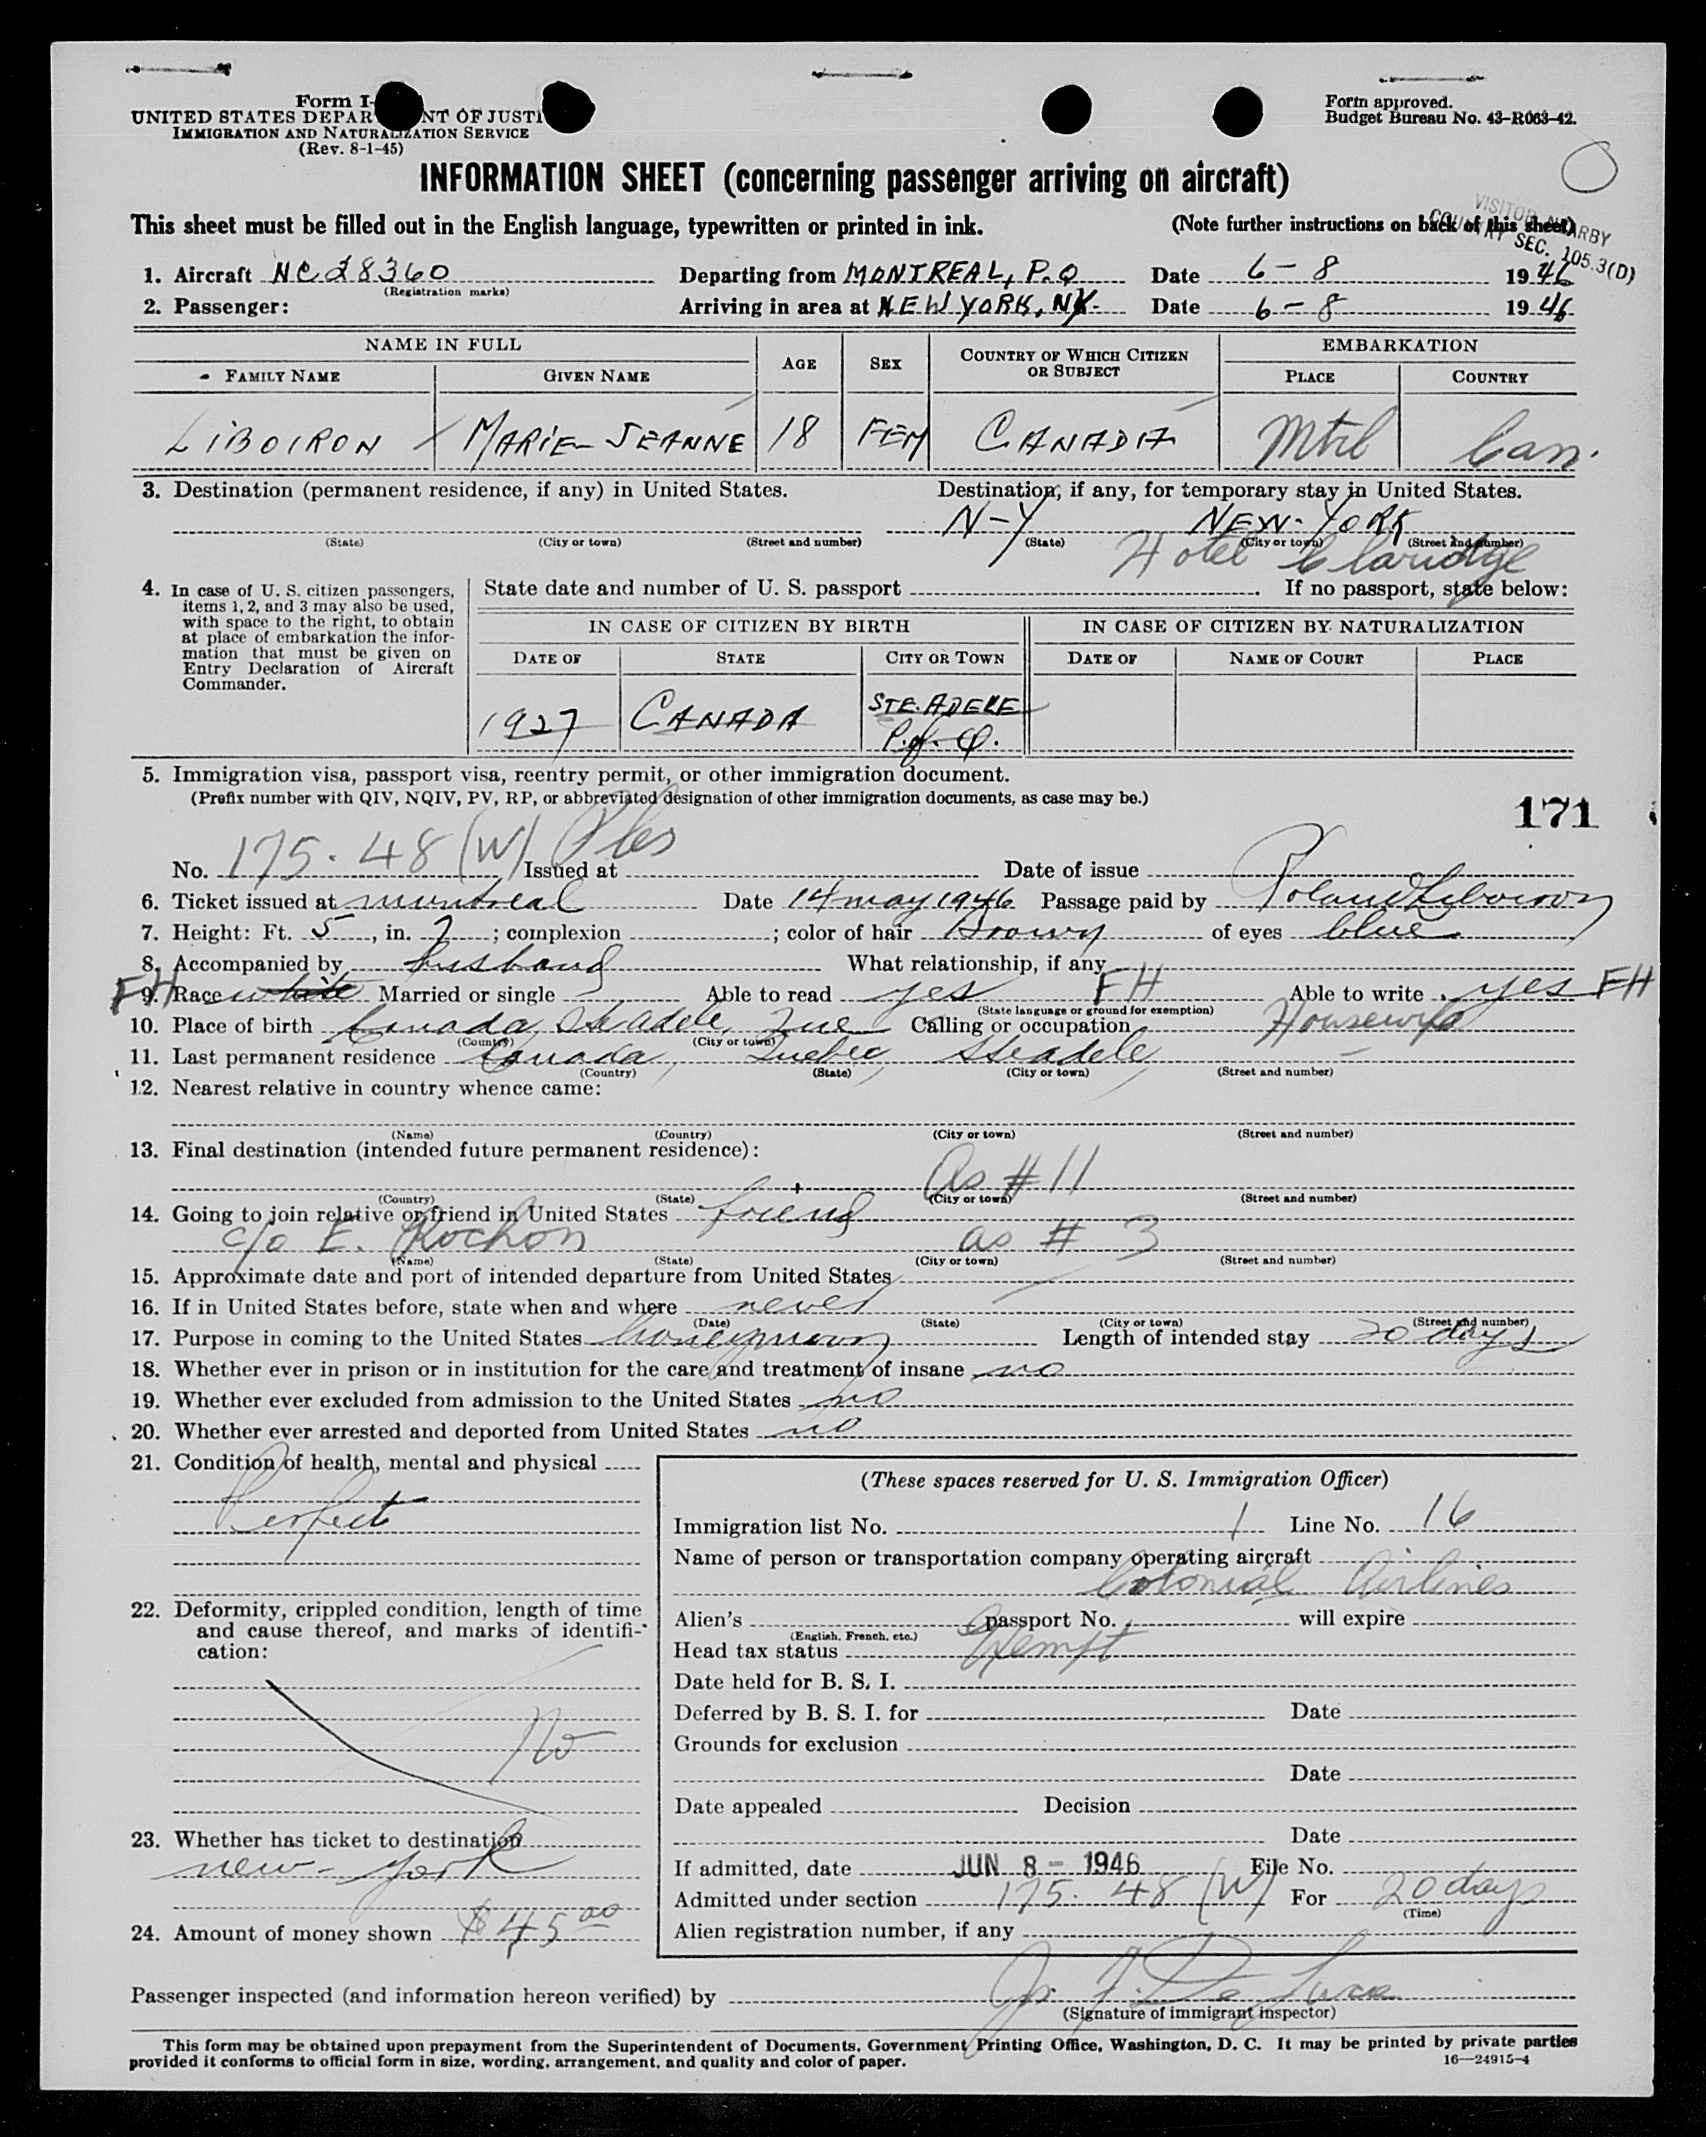 Form I-
UNITED STATES DEPAR NT OF JUSTI
IMMIGRATION AND NATURALIZATION SERVICE
(Rev. 8-1-45)
Form approved.
Budget Bureau No. 43-R063-42.
INFORMATION SHEET (concerning passenger arriving on aircraft)
This sheet must be filled out in the English language, typewritten or printed in ink. (Note further instructions on back of this sheet)
VISITOR NEARBY
COUNTRY SEC. 105.3(D)
1. Aircraft NC28360 Departing from MONTREAL, P.Q Date 6-8 1946
(Registration marks)
2. Passenger: Arriving in area at NEW YORK, NY. Date 6-8 1946
NAME IN FULL AGE SEX COUNTRY OF WHICH CITIZEN OR SUBJECT EMBARKATION
FAMILY NAME GIVEN NAME PLACE COUNTRY
LIBOIRON MARIE-JEANNE 18 FEM CANADIA Mtrl Can.
3. Destination (permanent residence, if any) in United States. Destination, if any, for temporary stay in United States.
N-Y NEW-YORK
(State) (City or town) (Street and number) (State) (City or town) (Street and number)
Hotel Claridge
4. In case of U. S. citizen passengers, items 1, 2, and 3 may also be used, with space to the right, to obtain at place of embarkation the information that must be given on Entry Declaration of Aircraft Commander.
State date and number of U. S. passport . If no passport, state below:
IN CASE OF CITIZEN BY BIRTH IN CASE OF CITIZEN BY NATURALIZATION
DATE OF STATE CITY OR TOWN DATE OF NAME OF COURT PLACE
1927 CANADA STE. ADELE
P.of.Q.
5. Immigration visa, passport visa, reentry permit, or other immigration document.
(Prefix number with QIV, NQIV, PV, RP, or abbreviated designation of other immigration documents, as case may be.)
171
No. 175.48 (W) Pls Issued at Date of issue
6. Ticket issued at montreal Date 14 may 1946 Passage paid by Roland Liboiron
7. Height: Ft. 5, in. 7; complexion ; color of hair Brown of eyes blue
8. Accompanied by husband What relationship, if any
FH 9. Race white Married or single Able to read yes FH Able to write yes FH
(State language or ground for exemption)
10. Place of birth Canada, Steadele, Que Calling or occupation Housewife
(Country) (City or town)
11. Last permanent residence Canada, Quebec, Steadele
(Country) (State) (City or town) (Street and number)
12. Nearest relative in country whence came:
(Name) (Country) (City or town) (Street and number)
13. Final destination (intended future permanent residence):
As # 11
(Country) (State) (City or town) (Street and number)
14. Going to join relative or friend in United States friend
c/o E. Rochon as # 3
(Name) (State) (City or town) (Street and number)
15. Approximate date and port of intended departure from United States
16. If in United States before, state when and where never
(Date) (State) (City or town) (Street and number)
17. Purpose in coming to the United States honeymoon Length of intended stay 20 days
18. Whether ever in prison or in institution for the care and treatment of insane no
19. Whether ever excluded from admission to the United States no
20. Whether ever arrested and deported from United States no
21. Condition of health, mental and physical
Perfect
22. Deformity, crippled condition, length of time and cause thereof, and marks of identification:
No
23. Whether has ticket to destination
new-york
24. Amount of money shown $45.00
(These spaces reserved for U. S. Immigration Officer)
Immigration list No. 1 Line No. 16
Name of person or transportation company operating aircraft
Colonial Airlines
Alien's passport No. will expire
(English, French, etc.)
Head tax status Exempt
Date held for B. S. I.
Deferred by B. S. I. for Date
Grounds for exclusion
Date
Date appealed Decision
Date
If admitted, date JUN 8 - 1946 File No.
Admitted under section 175.48 (W) For 20 days
(Time)
Alien registration number, if any
Passenger inspected (and information hereon verified) by
(Signature of immigrant inspector)
This form may be obtained upon prepayment from the Superintendent of Documents, Government Printing Office, Washington, D. C. It may be printed by private parties
provided it conforms to official form in size, wording, arrangement, and quality and color of paper. 16—24915-4